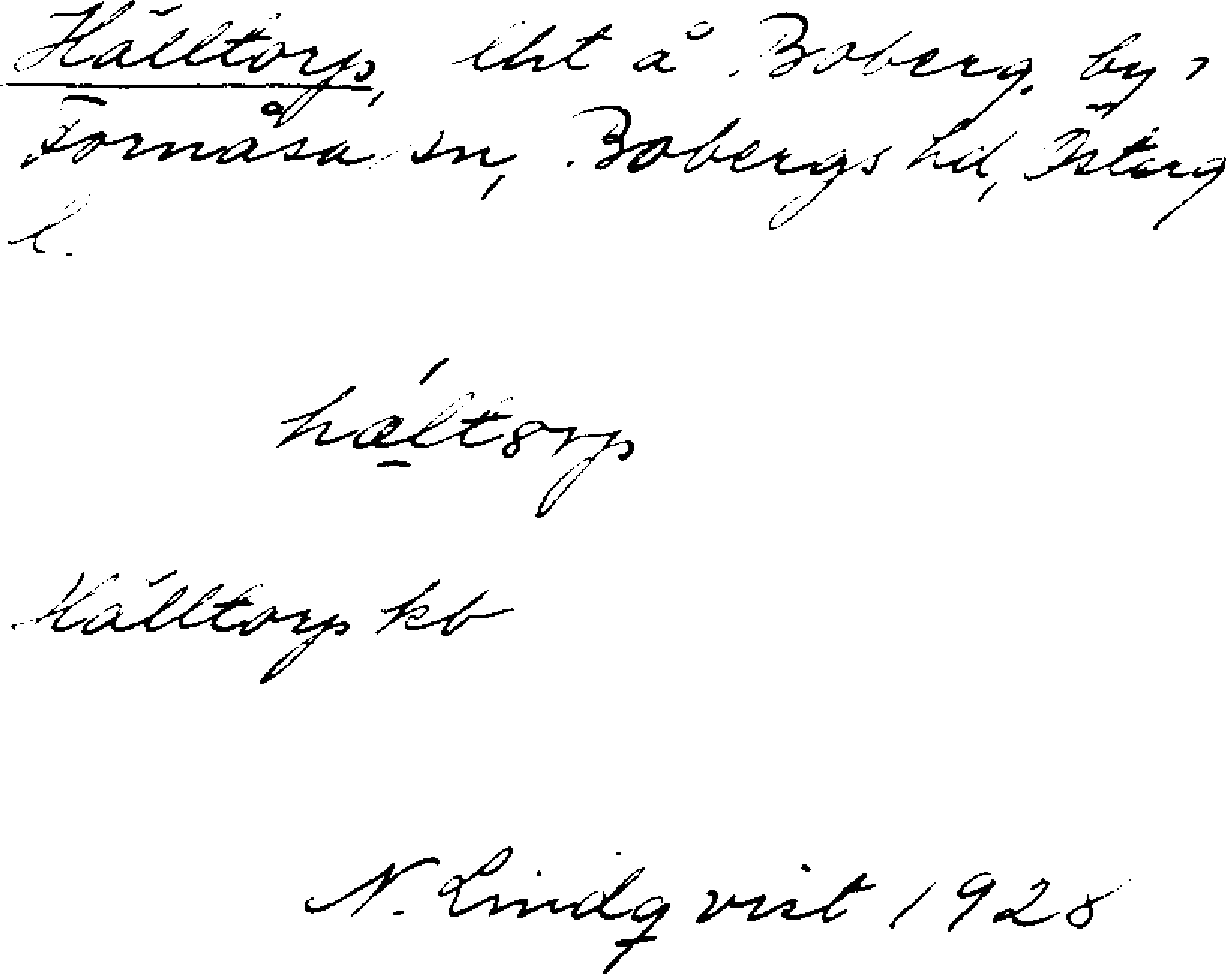 Hälltorp, lht å Boberg. by,
Fornåsa sn, Bobergs hd, Österg
l.
hǽ̱ltorp
Hälltorp kb
N. Lindqvist 1928